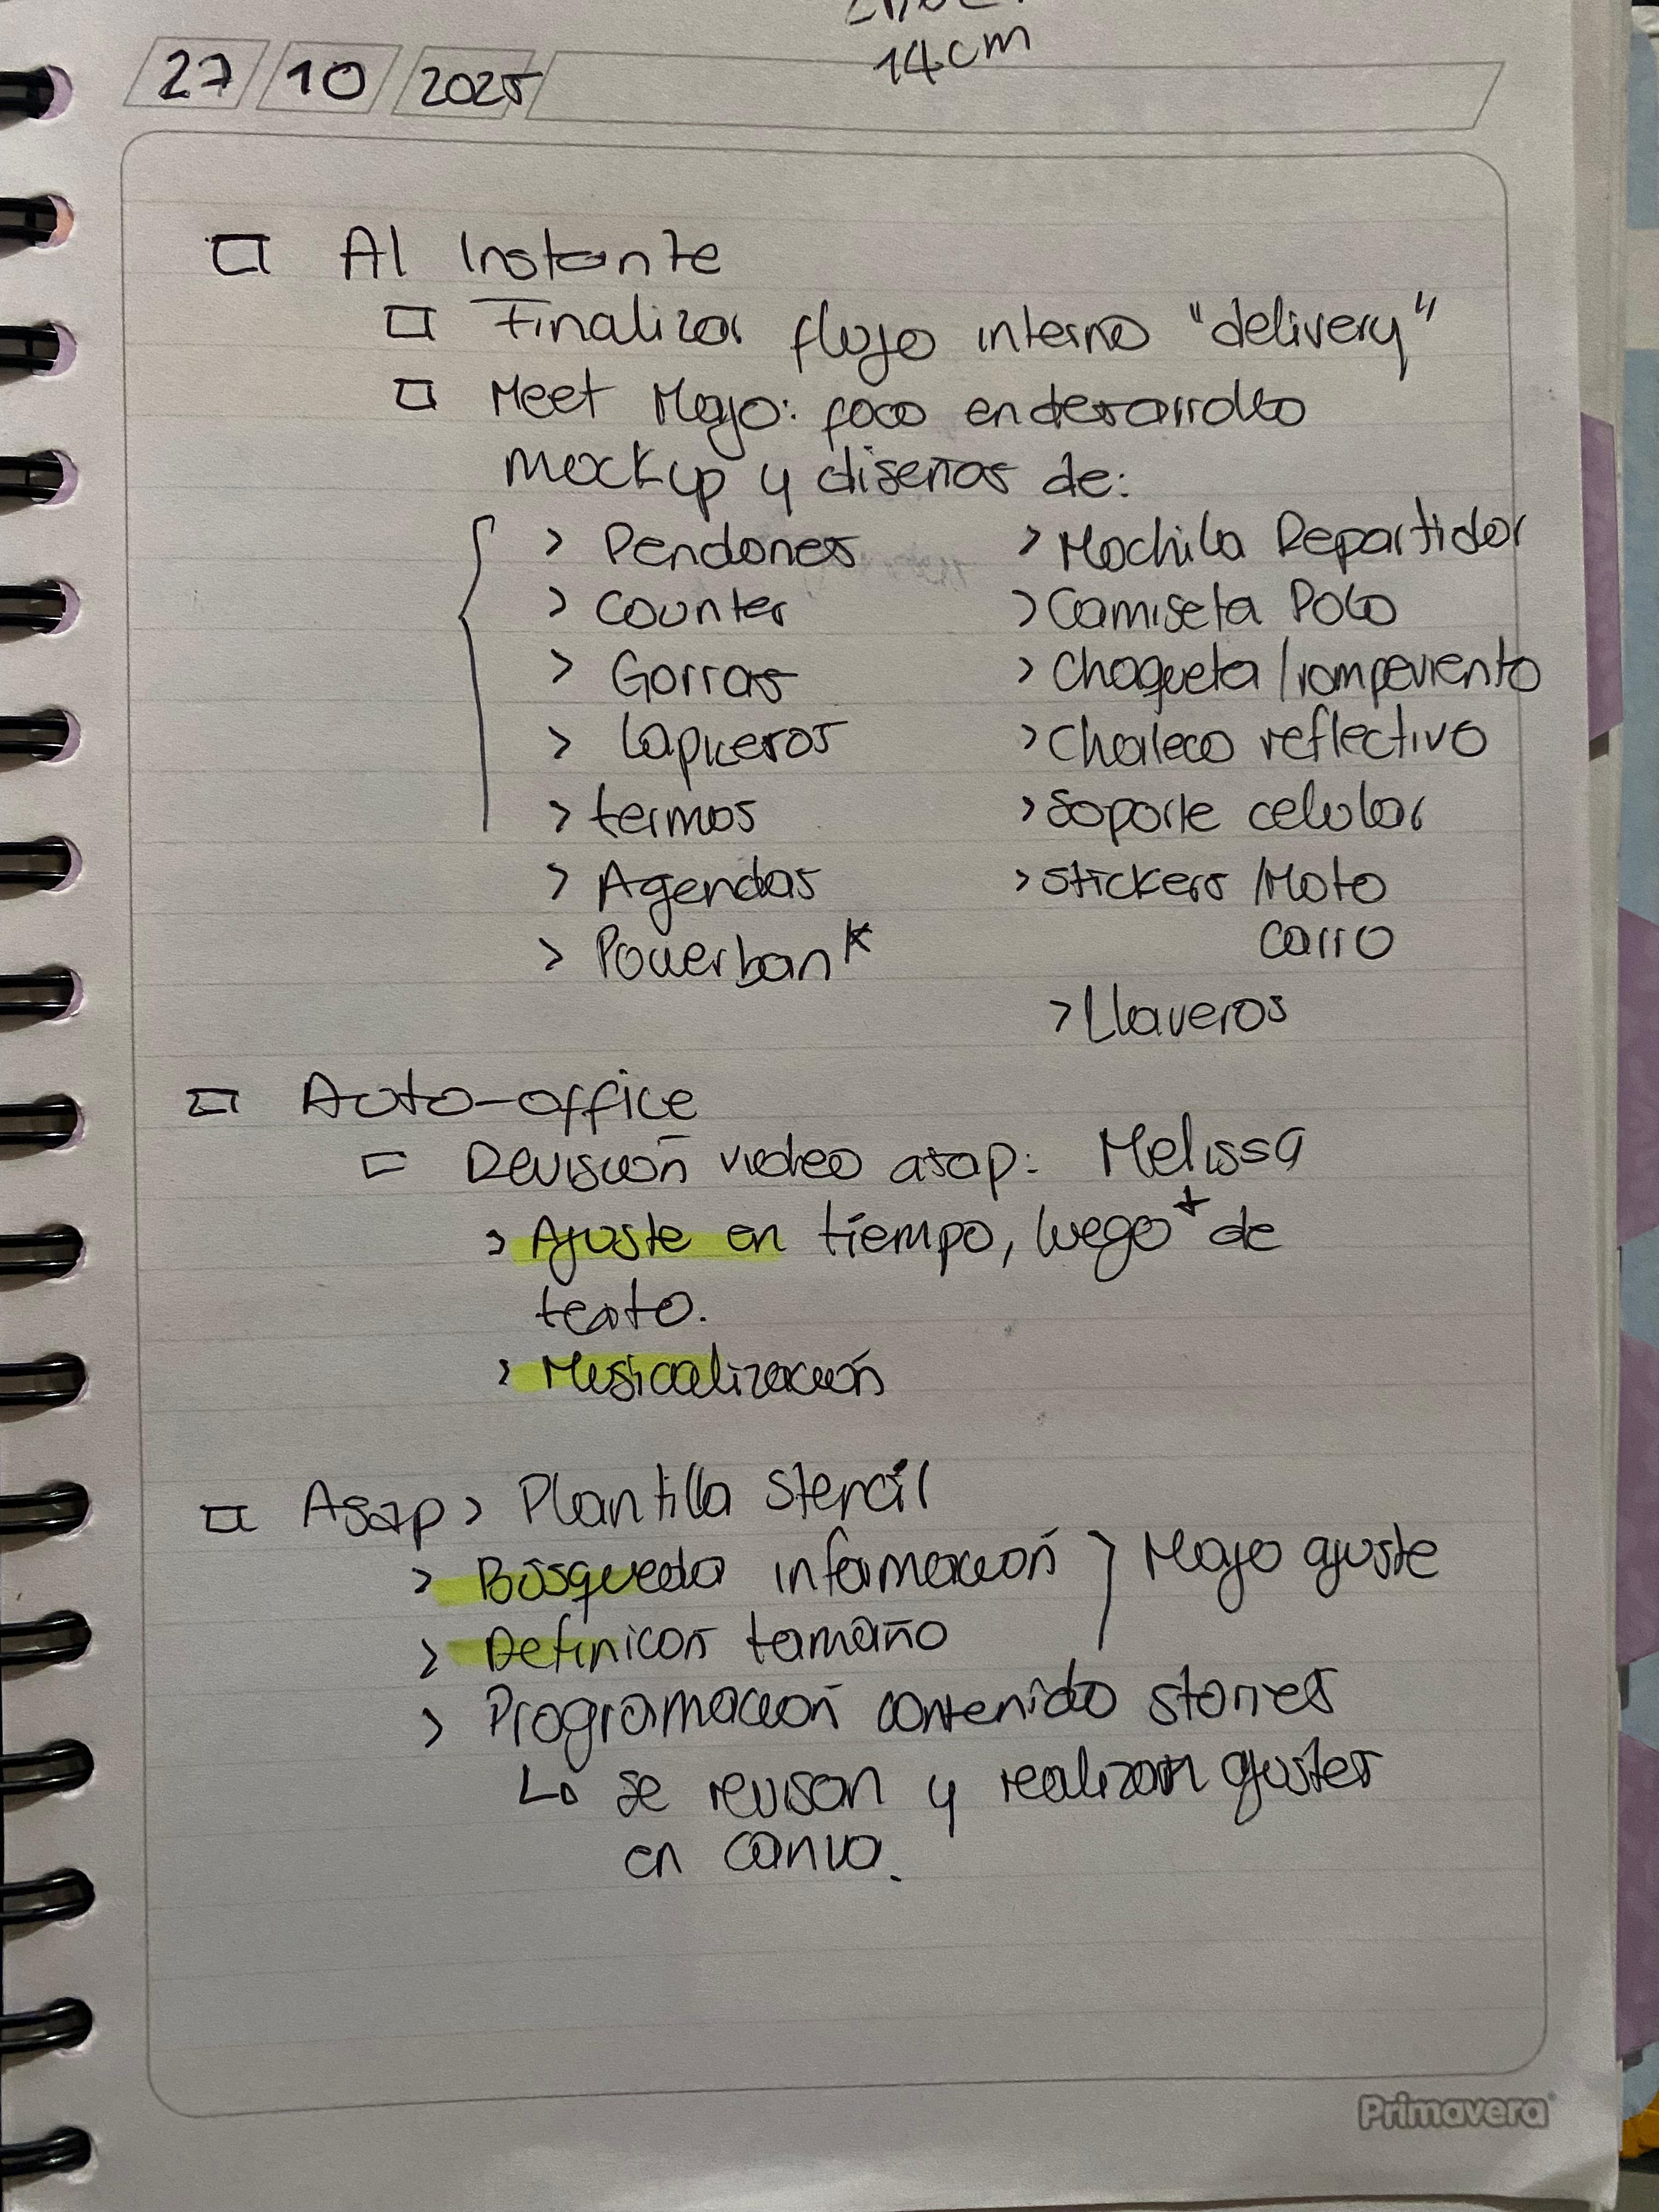 14cm
27 10 2025
Al Instante
Finalizar flujo interno "delivery"
Meet Mayo: foco en desarrollo
mockup y diseños de:
> Pendones > Mochila Repartidor
> Counter > Camiseta Polo
> Gorras > Chaqueta / rompeviento
> Lapiceros > Chaleco reflectivo
> termos > Soporte celular
> Agendas > Stickers / Moto
Carro
> Powerbank
> Llaveros
Auto-office
Revisión video asap: Melissa
> Ajuste en tiempo, luego + de
texto.
> Musicalización
Asap > Plantilla Stencil
> Búsqueda información } Mayo ajuste
> Definicar tamaño
> Programación contenido stories
↳ se revisan y realizan ajustes
en canva.
Primavera